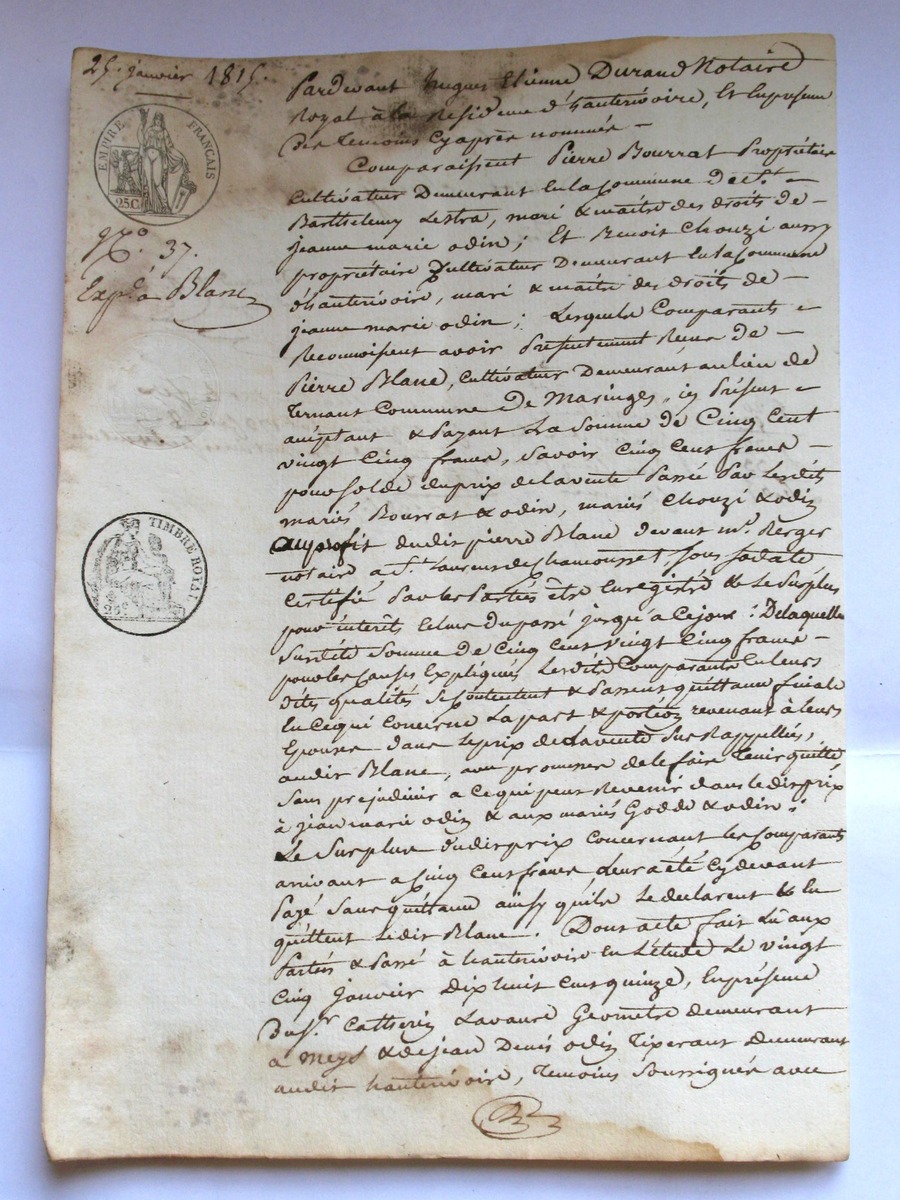 25 janvier 1815.
EMPIRE FRANÇAIS
25C
No. 37.
Exp. a Blanc
TIMBRE ROYAL
25c
Pardevant hugues Etienne Durand Notaire
Royal à la Residence d'hauterivoire, Et En presence
des temoins Cy après nommés –
Comparaissent Pierre Bourrat Propriétaire
Cultivateur Demeurant En la Commune de St. –
Barthelemy Lestra, mari & maitre des droits de –
jeanne marie odin ; Et Benoit Chouzi aussy
propriétaire Cultivateur Demeurant En la Commune
d'hauterivoire, mari & maitre des droits de –
jeanne marie odin ; Lesquels Comparants –
Reconnoissent avoir Presentement Receu de –
Pierre Blanc, Cultivateur Demeurant au lieu de
Ternant Commune De Maringes, icy Présent –
acceptant & Payant La Somme de Cinq Cent
vingt Cinq francs, Savoir Cinq Cent francs –
pour Solde du prix de la vente Passée Par lesdits
mariés Bourrat & odin, mariés Chouzi & odin
au profit dudit pierre Blanc devant me. Berger
notaire a St. Laurens de Chamousset, Sous Sa date
Certifié Par les Parties être Enregistré & Le Surplus
pour interêts Echus du passé jusqu'à Ce jour : De laquelle
Susdite Somme de Cinq Cent vingt Cinq francs –
pour les Causes Expliqués Lesdits Comparants En leurs
dites qualités Se Contentent & Passent quittance finale
En Ce qui Concerne La part & portion revenant à leurs
Epouses dans le prix de la vente Sus Rappellés,
audit Blanc, avec promesse de le faire tenir quitte,
Sans prejudicier a Ce qui peut Revenir dans ledit prix
à jean marie odin & aux mariés Godde & odin ;
Le Surplus dudit prix Concernant les Comparants
arrivant a Cinq Cent francs leur a été Cy devant
Payé Sans quittance ainsy qu'ils le declarent & En
quittent Ledit Blanc. Dont acte fait Lu aux
Parties & Passé à hauterivoire En L'étude Le vingt
Cinq Janvier Dix huit Cent quinze, En présence
du Sr. Catherin Lavaure Geomètre demeurant
a Meys & de jean Denis odin Tixerant Demeurant
audit hauterivoire, Temoins Soussignés avec